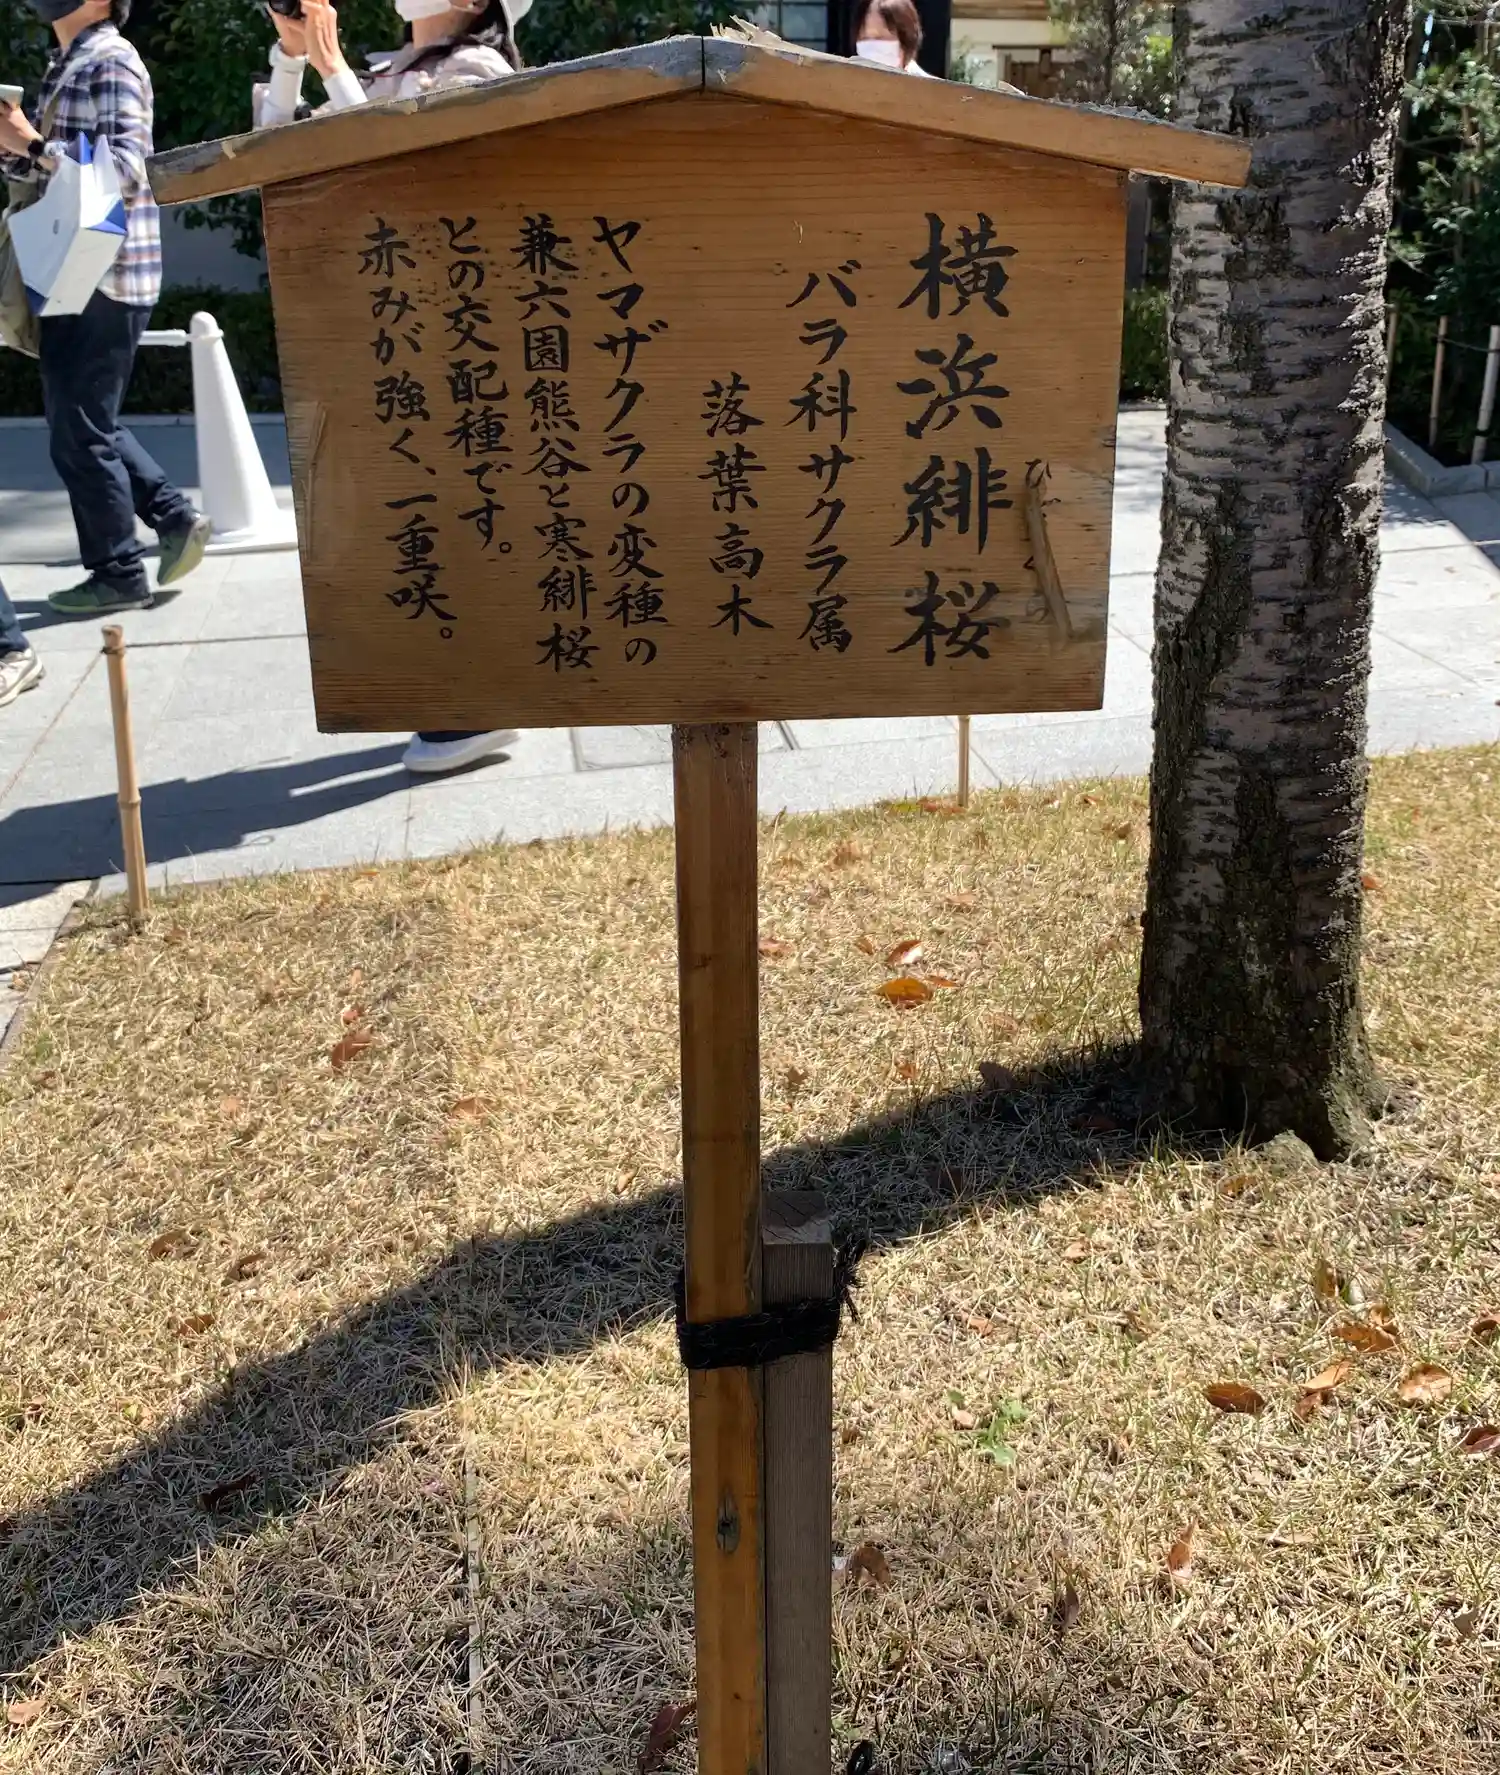 横浜緋桜
バラ科サクラ属
落葉高木
ヤマザクラの変種の
兼六園熊谷と寒緋桜
との交配種です。
赤みが強く、一重咲。